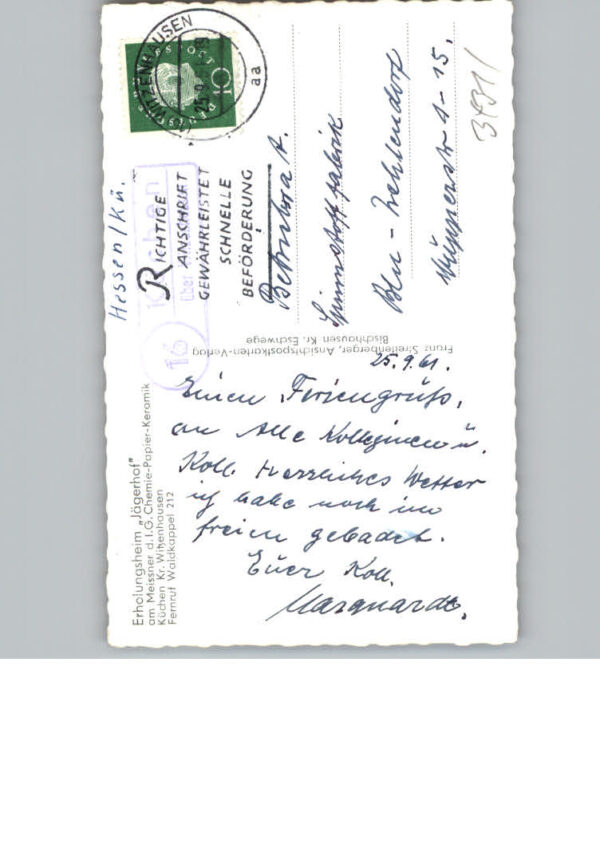 Erholungsheim „Jägerhof"
am Meissner d. I.G. Chemie-Papier-Keramik
Küchen Kr. Witzenhausen
Fernruf Waldkappel 212
25.9.61.
Einen Feriengruß,
an Alle Kolleginnen u.
Koll. Herrliches Wetter
ich habe noch im
freien gebadet.
Euer Koll.
Marquardt.
Franz Streitenberger, Ansichtspostkarten-Verlag
Bischhausen Kr. Eschwege
Hessen/Kü.
(16) Küchen
über
WITZENHAUSEN
25.9.
aa
DEUTSCHE BUNDESPOST
10
RICHTIGE
ANSCHRIFT
GEWÄHRLEISTET
SCHNELLE
BEFÖRDERUNG
Spinnstofffabrik
Bln-Zehlendorf
Wupperstr 1-15.